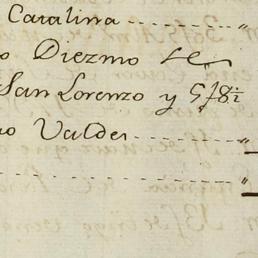 Catalina
o Diezmo de
San Lorenzo y
no Valdes